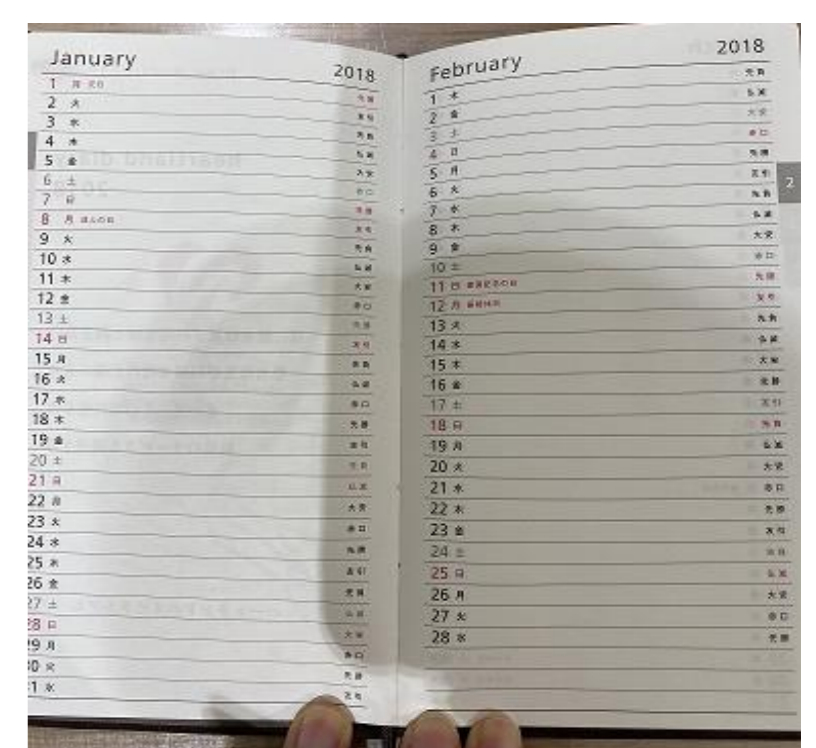 January 2018
1 月 元日 先勝
2 火 友引
3 水 先負
4 木 仏滅
5 金 大安
6 土 赤口
7 日 先勝
8 月 成人の日 友引
9 火 先負
10 水 仏滅
11 木 大安
12 金 赤口
13 土 先勝
14 日 友引
15 月 先負
16 火 仏滅
17 水 赤口
18 木 先勝
19 金 友引
20 土 先負
21 日 仏滅
22 月 大安
23 火 赤口
24 水 先勝
25 木 友引
26 金 先負
27 土 仏滅
28 日 大安
29 月 赤口
30 火 先勝
31 水 友引
February 2018
1 木 先負
2 金 仏滅
3 土 大安
4 日 赤口
5 月 先勝
6 火 友引
7 水 先負
8 木 仏滅
9 金 大安
10 土 赤口
11 日 建国記念の日 先勝
12 月 振替休日 友引
13 火 先負
14 水 仏滅
15 木 大安
16 金 先勝
17 土 友引
18 日 先負
19 月 仏滅
20 火 大安
21 水 赤口
22 木 先勝
23 金 友引
24 土 先負
25 日 仏滅
26 月 大安
27 火 赤口
28 水 先勝
2